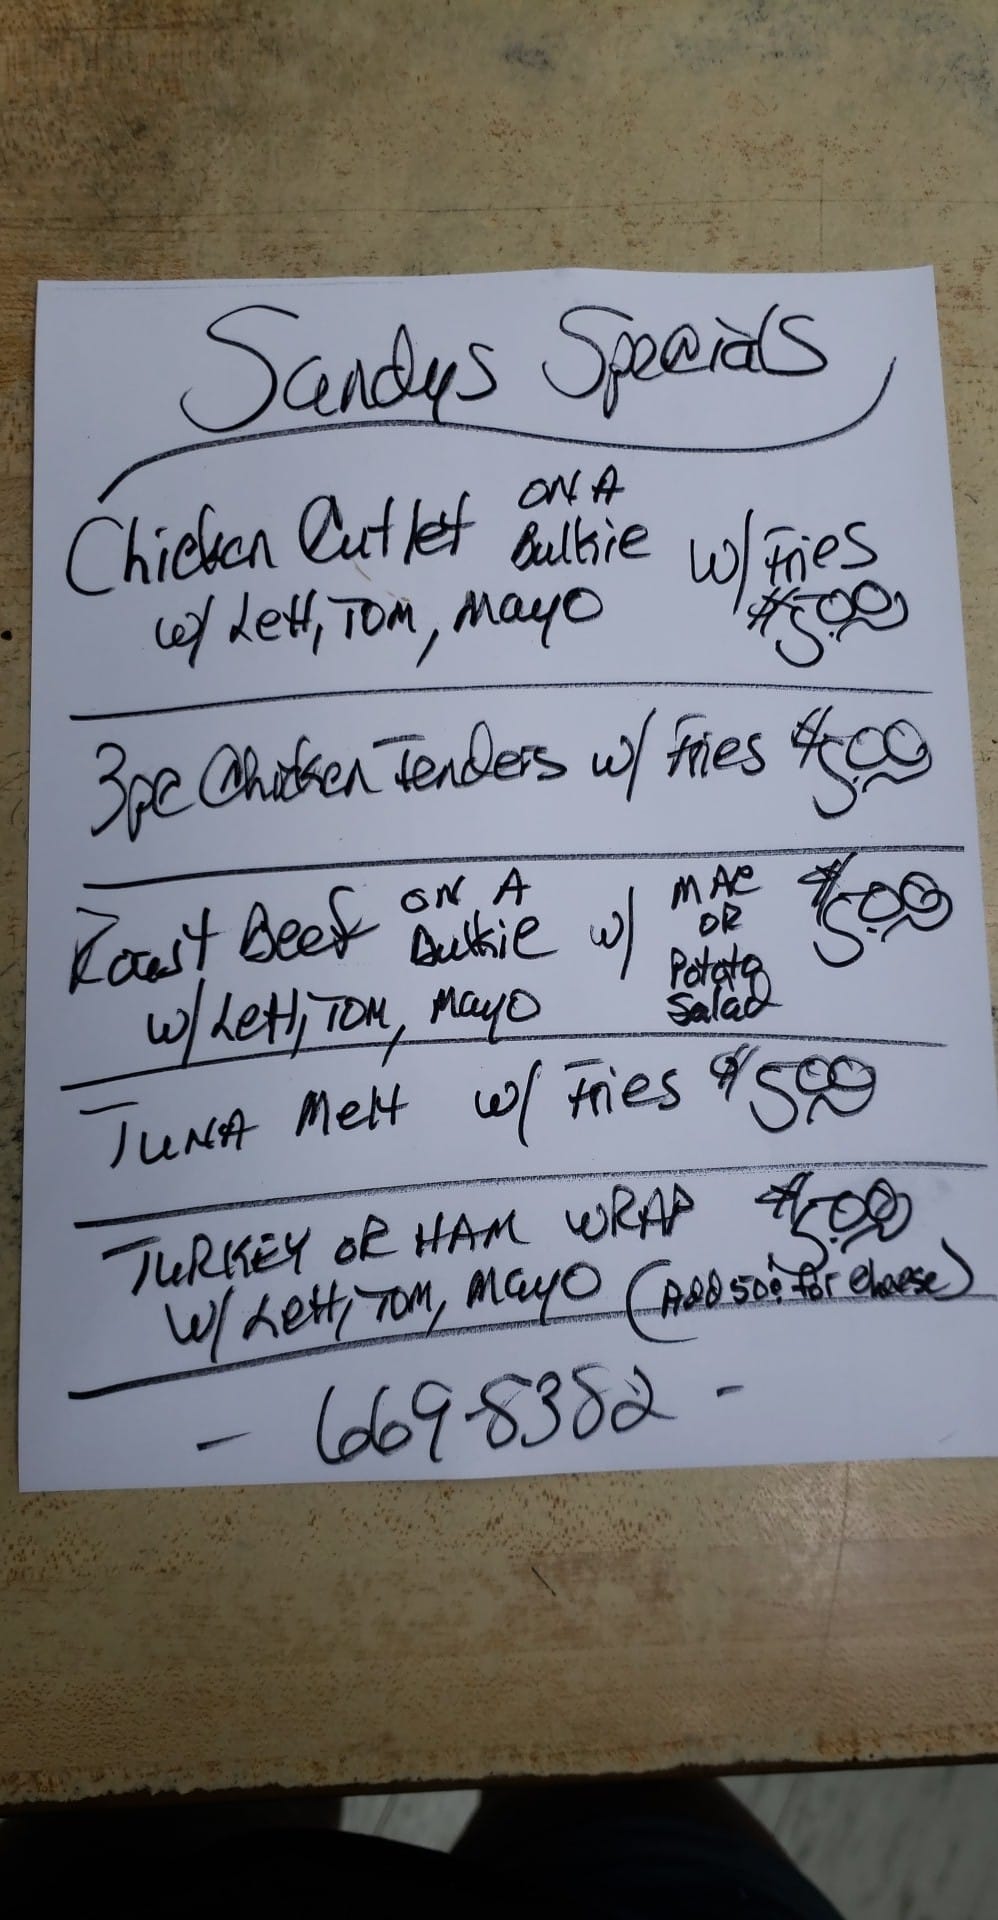 Sandys Specials
Chicken Cutlet ON A Bulkie w/ Fries
w/ Lett, TOM, MAYO $5.00
3pc Chicken Tenders w/ Fries $5.00
Roast Beef ON A Bulkie w/ MAC OR Potato Salad $5.00
w/ Lett, TOM, MAYO
TUNA Melt w/ Fries $5.00
TURKEY OR HAM WRAP $5.00
w/ Lett, TOM, MAYO (Add 50¢ for cheese)
- 669-8382 -